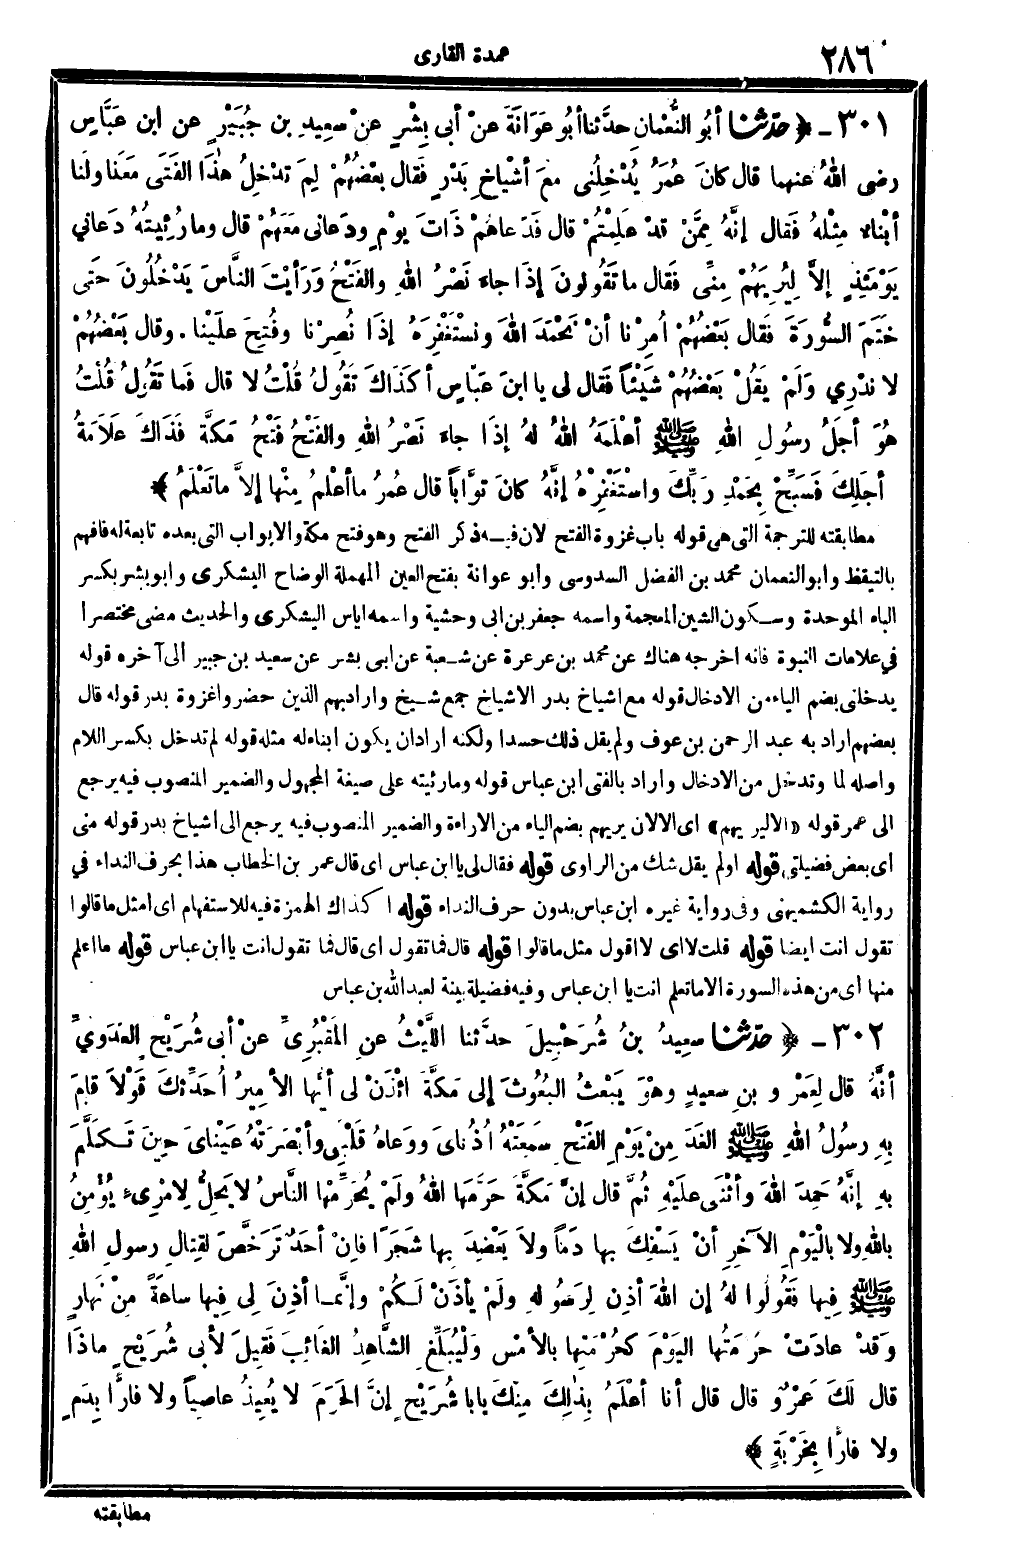 ٢٨٦
عمدة القارى
٣٠١ - ﴿ حدثنا أبُو النُّعْمانِ حدَّثنا أبُو عَوَانَةَ عنْ أبى بِشْرٍ عنْ سَعِيدِ بنِ جُبَيْرٍ عنِ ابنِ عَبَّاسٍ
رضى اللهُ عنهما قال كانَ عُمَرُ يُدْخِلُنى معَ أشْياخِ بَدْرٍ فَقال بعْضُهُمْ لِمَ تدْخِلُ هٰذَا الفَتَى مَعَنا ولَنا
أبْناء مِثْلهُ فَقال إنَّهُ مِمَّنْ قدْ عَلِمْتُمْ قال فَدَعاهُمْ ذَاتَ يوْمٍ ودَعانى مَعَهُمْ قال وما رُئِيتُهُ دَعاني
يَوْمَئِذٍ إلاَّ لِيُرِيَهُمْ مِنِّى فَقال ما تَقُولونَ إذَا جاءَ نَصْرُ اللهِ والفَتْحُ وَرَأيْتَ النَّاسَ يَدْخُلُونَ حَتى
خَتَمَ السُّورَةَ فَقال بَعْضُهُمْ أمِرْنا أنْ نَحْمَدَ اللهَ ونسْتَغْفِرَهُ إذَا نُصِرْنا وفُتِحَ علَيْنا . وقال بَعْضُهُمْ
لا ندْرِي وَلَمْ يَقُلْ بَعْضُهُمْ شَيْئاً فَقال لى يا ابنَ عَبَّاسٍ أكَذَاكَ تَقُولُ قُلْتُ لا قال فَما تَقُولُ قُلْتُ
هُوَ أجَلُ رسُولِ اللهِ ﷺ أعْلَمَهُ اللهُ لهُ إذَا جاءَ نَصْرُ اللهِ والفَتْحُ فَتْحُ مَكَّةَ فَذَاكَ علاَمَةُ
أجَلِكَ فَسَبِّحْ بِحَمْدِ رَبِّكَ واسْتَغْفِرْهُ إنَّهُ كانَ توَّاباً قال عُمرُ ما أعْلمُ مِنْها إلاَّ ما تَعْلَمُ ﴾
مطابقته للترجمة التى هى قوله باب غزوة الفتح لان فيه ذكر الفتح وهو فتح مكة والابواب التى بعده تابعة له فافهم
بالتيقظ وابو النعمان محمد بن الفضل السدوسى وابو عوانة بفتح العين المهملة الوضاح اليشكرى وابو بشر بكسر
الباء الموحدة وسكون الشين المعجمة واسمه جعفر بن ابى وحشية واسمه اياس اليشكرى والحديث مضى مختصرا
في علامات النبوة فانه اخرجه هناك عن محمد بن عرعرة عن شعبة عن ابى بشر عن سعيد بن جبير الى آخره قوله
يدخلنى بضم الياء من الادخال قوله مع اشياخ بدر الاشياخ جمع شيخ واراد بهم الذين حضروا غزوة بدر قوله قال
بعضهم اراد به عبد الرحمن بن عوف ولم يقل ذلك حسدا ولكنه اراد ان يكون ابناء له مثله قوله لم تدخل بكسر اللام
واصله لما وتدخل من الادخال واراد بالفتى ابن عباس قوله وما رئيته على صيغة المجهول والضمير المنصوب فيه يرجع
الى عمر قوله «الا ليريهم» اى الا لان يريهم بضم الياء من الاراءة والضمير المنصوب فيه يرجع الى اشياخ بدر قوله منى
اى بعض فضيلتى قوله اولم يقل شك من الراوى قوله فقال لى يا ابن عباس اى قال عمر بن الخطاب هذا بحرف النداء في
رواية الكشميهنى وفى رواية غيره ابن عباس بدون حرف النداء قوله اكذاك الهمزة فيه للاستفهام اى امثل ما قالوا
تقول انت ايضا قوله قلت لا اى لا اقول مثل ما قالوا قوله قال فما تقول اى قال فما تقول انت يا ابن عباس قوله ما اعلم
منها اى من هذه السورة الا ما تعلم انت يا ابن عباس وفيه فضيلة بينة لعبد الله بن عباس
٣٠٢ - ﴿ حدثنا سعِيدُ بنُ شُرَحْبِيلَ حدَّثنا اللَّيْثُ عنِ المَقْبُرِىِّ عنْ أبى شُرَيْحٍ العَدَوِيِّ
أنَّهُ قال لِعَمْرِو بنِ سعِيدٍ وهْوَ يَبْعَثُ البُعُوثَ إلى مَكَّةَ ائْذَنْ لى أيُّها الأمِيرُ أُحَدِّثكَ قَوْلاً قامَ
بِهِ رسُولُ اللهِ ﷺ الغَدَ مِنْ يَوْمِ الفَتْحِ سَمِعَتْهُ أُذُنايَ ووَعاهُ قَلْبِي وأبْصَرَتْهُ عَيْنايَ حِينَ تَكلَّمَ
بهِ إنَّهُ حَمِدَ اللهَ وأثْنَى علَيْهِ ثُمَّ قال إنَّ مَكَّةَ حَرَّمَها اللهُ ولَمْ يُحَرِّمْها النَّاسُ لا يَحِلُّ لِامْرِىءٍ يُؤْمِنُ
باللهِ ولا باليَوْمِ الآخرِ أنْ يَسْفِكَ بها دَماً ولاَ يَعْضِدَ بها شَجَرًا فانْ أحَدٌ تَرَخَّصَ لقِتالِ رسولِ اللهِ
ﷺ فِيها فَقُولُوا لهُ إن اللهَ أذِن لِرَسُولهِ ولَمْ يأذَنْ لَكُمْ وإنَّما أذِنَ لى فِيها ساعَةً مِنْ نَهارٍ
وَقدْ عادَتْ حرْمَتُها اليَوْمَ كحُرْمَتِها بالأمْسِ وَلْيُبَلِّغِ الشَّاهِدُ الغَائِبَ فَقِيلَ لأبى شُرَيْحٍ ماذَا
قال لَكَ عَمْرٌو قال قال أنا أعْلَمُ بِذَلِكَ مِنْكَ يا با شُرَيْحٍ إنَّ الحَرَمَ لا يُعِيذُ عاصِياً ولا فارًّا بِدَمٍ
ولا فارًّا بِخَرْبَةٍ ﴾
مطابقته